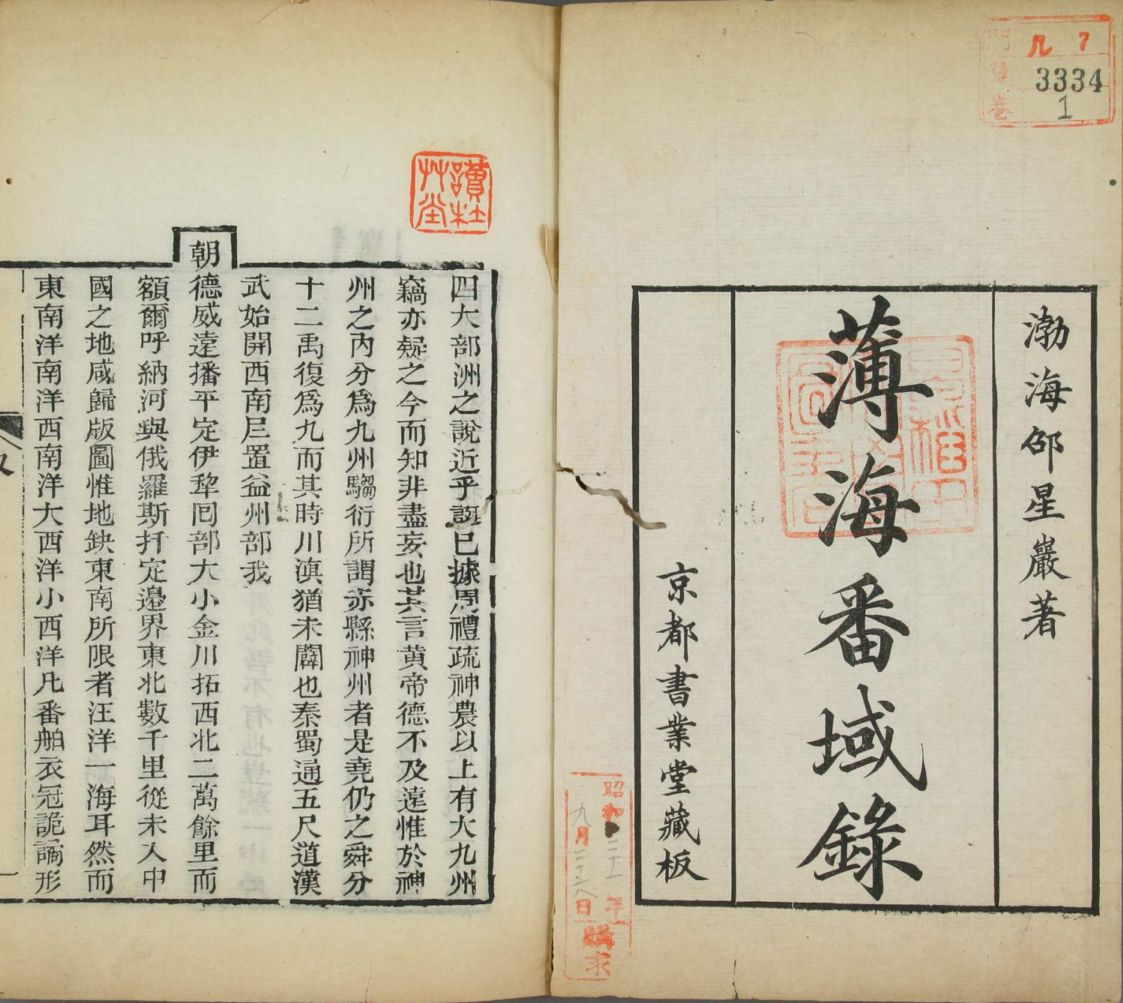 渤海邵星巖著
薄海番域錄
京都書業堂藏板
3334
1
昭和三十一年
九月二十八日
購求
讀杜
艸堂
四大部洲之說近乎誕已據周禮疏神農以上有大九州
竊亦疑之今而知非盡妄也其言黃帝德不及遠惟於神
州之內分爲九州騶衍所謂赤縣神州者是堯仍之舜分
十二禹復爲九而其時川滇猶未闢也秦蜀通五尺道漢
武始開西南尼置益州部我
朝德威遠播平定伊犂囘部大小金川拓西北二萬餘里而
額爾呼納河與俄羅斯扞定邊界東北數千里從未入中
國之地咸歸版圖惟地缺東南所限者汪洋一海耳然而
東南洋南洋西南洋大西洋小西洋凡番舶衣冠詭譎形